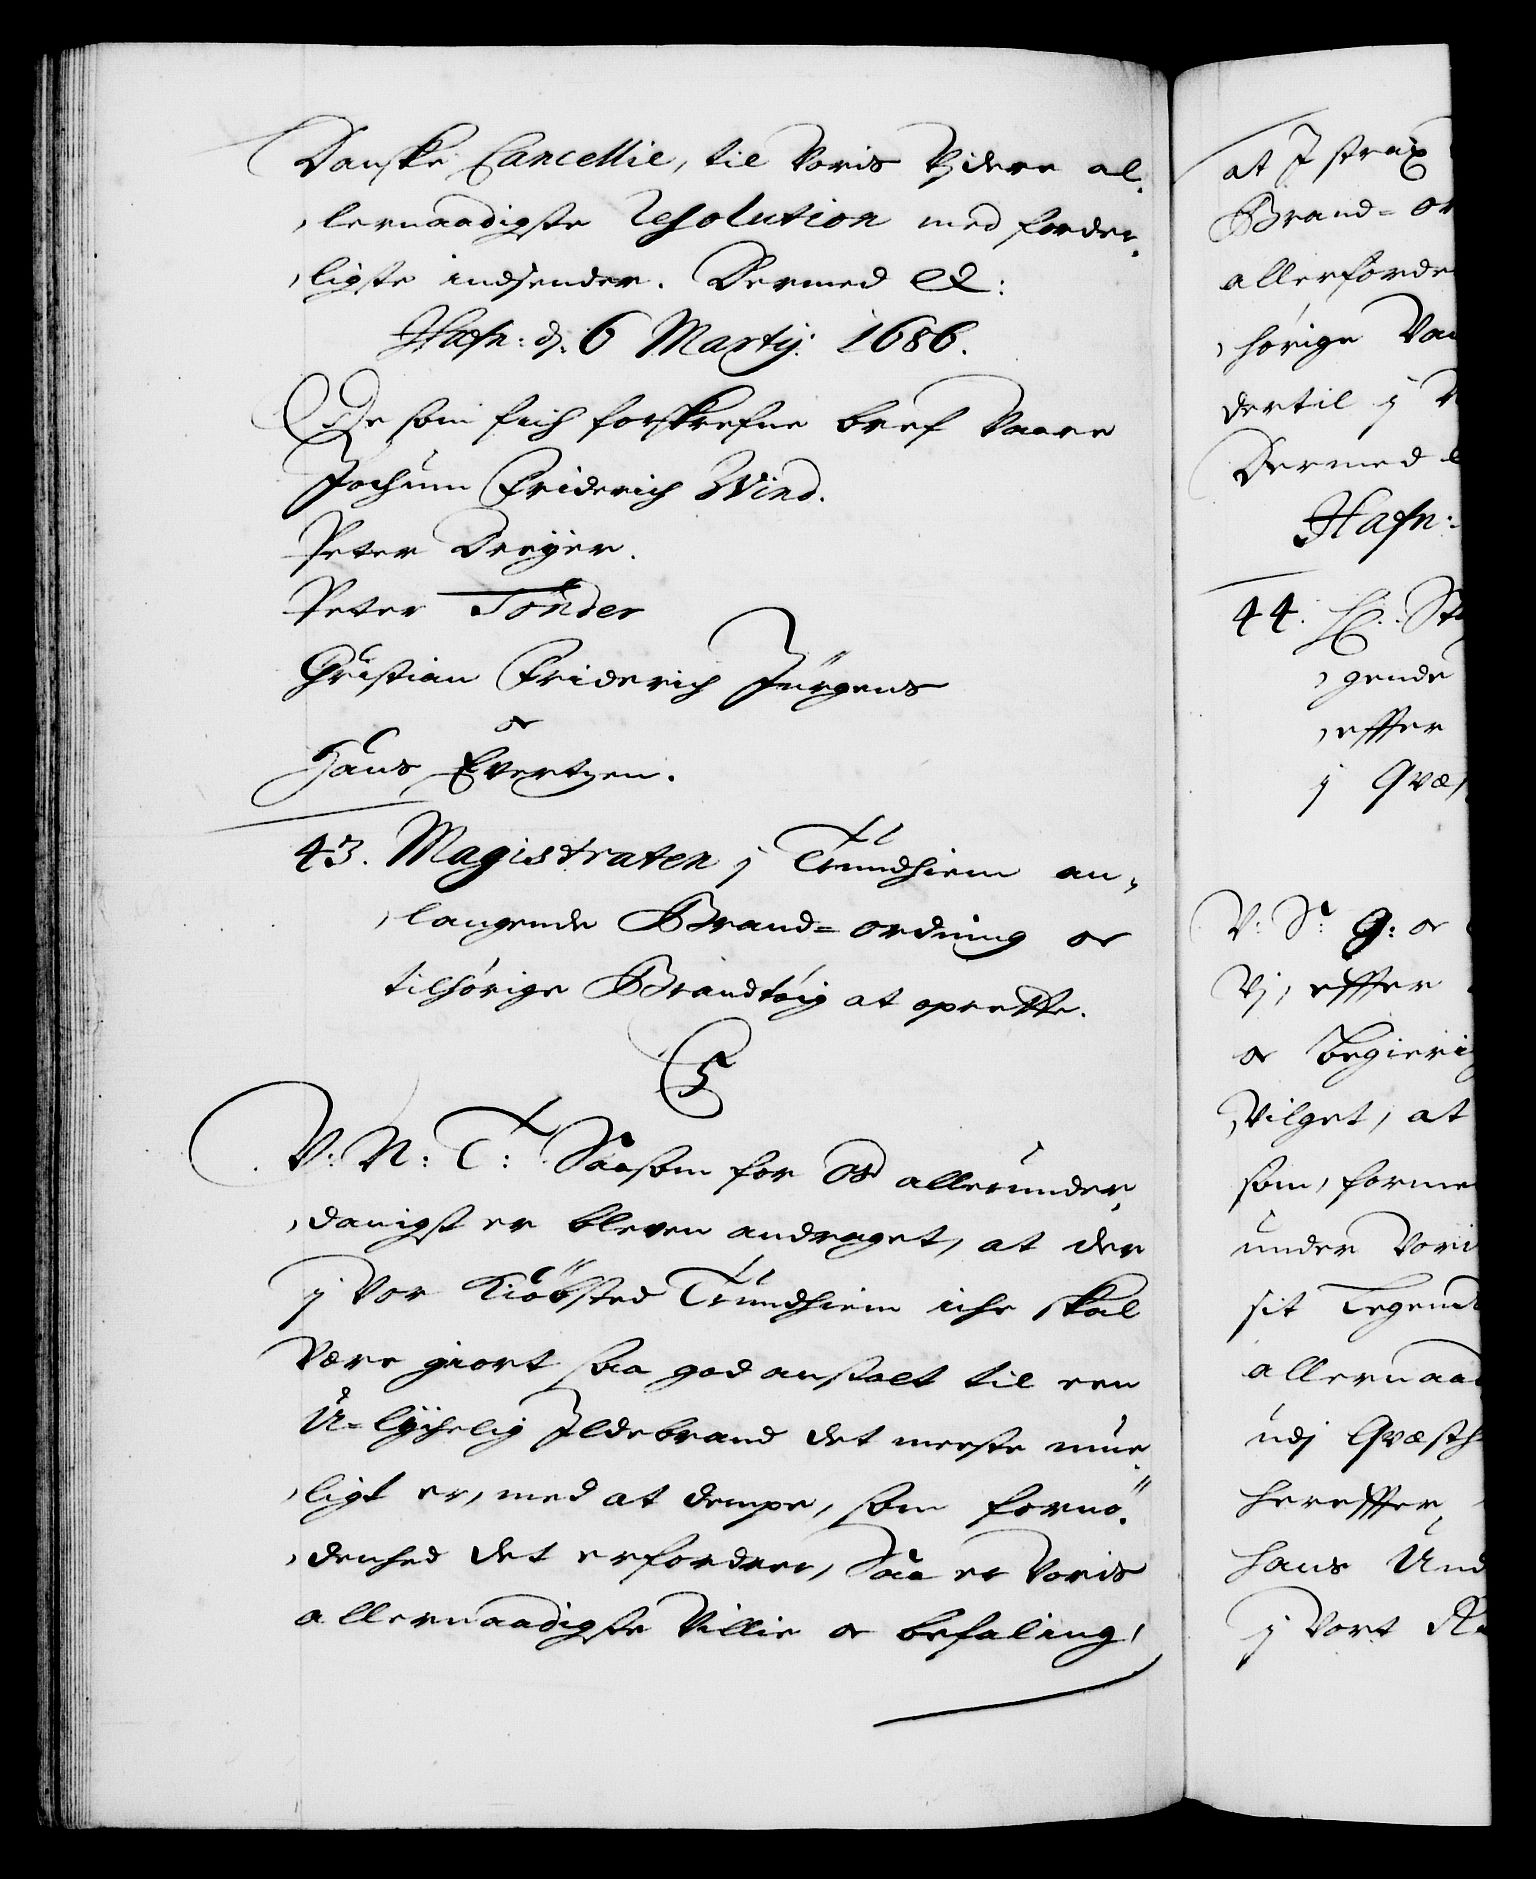 Danske Cancellie, til Voris Videre al,
,lernaadigste resolution med forder,
,ligste indsender. Dermed etc:
Hafn: d. 6 Martij. 1686.
De som fich forskrefne bref Vaare
Jochum Friderich Wind.
Peter Dreyer.
Peter Tönder
Christian Friderich Jürgens
oc
Hans Evertzen.
43. Magistraten j Trundhiem an,
,langende Brand=ordning oc
tilhörige Brandtöig at oprette.
C5
V: N: T: Saasom for Os allerunder,
,danigst er bleven andraget, at der
j Vor Kiöbsted Trundhiem iche skal
Være giort saa god anstalt til een
U=lychelig Ildebrand det meeste mue,
,ligt er, med at dempe, som fornö,
,denhed det erfordrer, Saa er Voris
allernaadigste Villie oc befaling,
at I strax
Brand=or
allerforde
,hörige Van
dertil j
Dermed
Hafn:
44. H: St
,gende
,effter
j Qvæs
V: S: G: oc
Vj, effter
oc begiering
Vilget, at
som, forme
under Vori
sit Segnel
allernaad
udj Qvæsth
hereffter,
hans Und
j Vort R